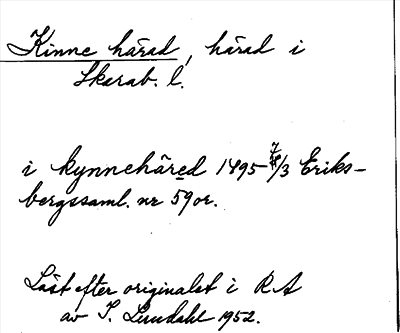 Kinne härad, härad i
Skarab. l.
i kynnehäred 1495 7/3 Eriks-
bergssaml. nr 59 or.
Läst efter originalet i RA
av I. Lundahl 1952.